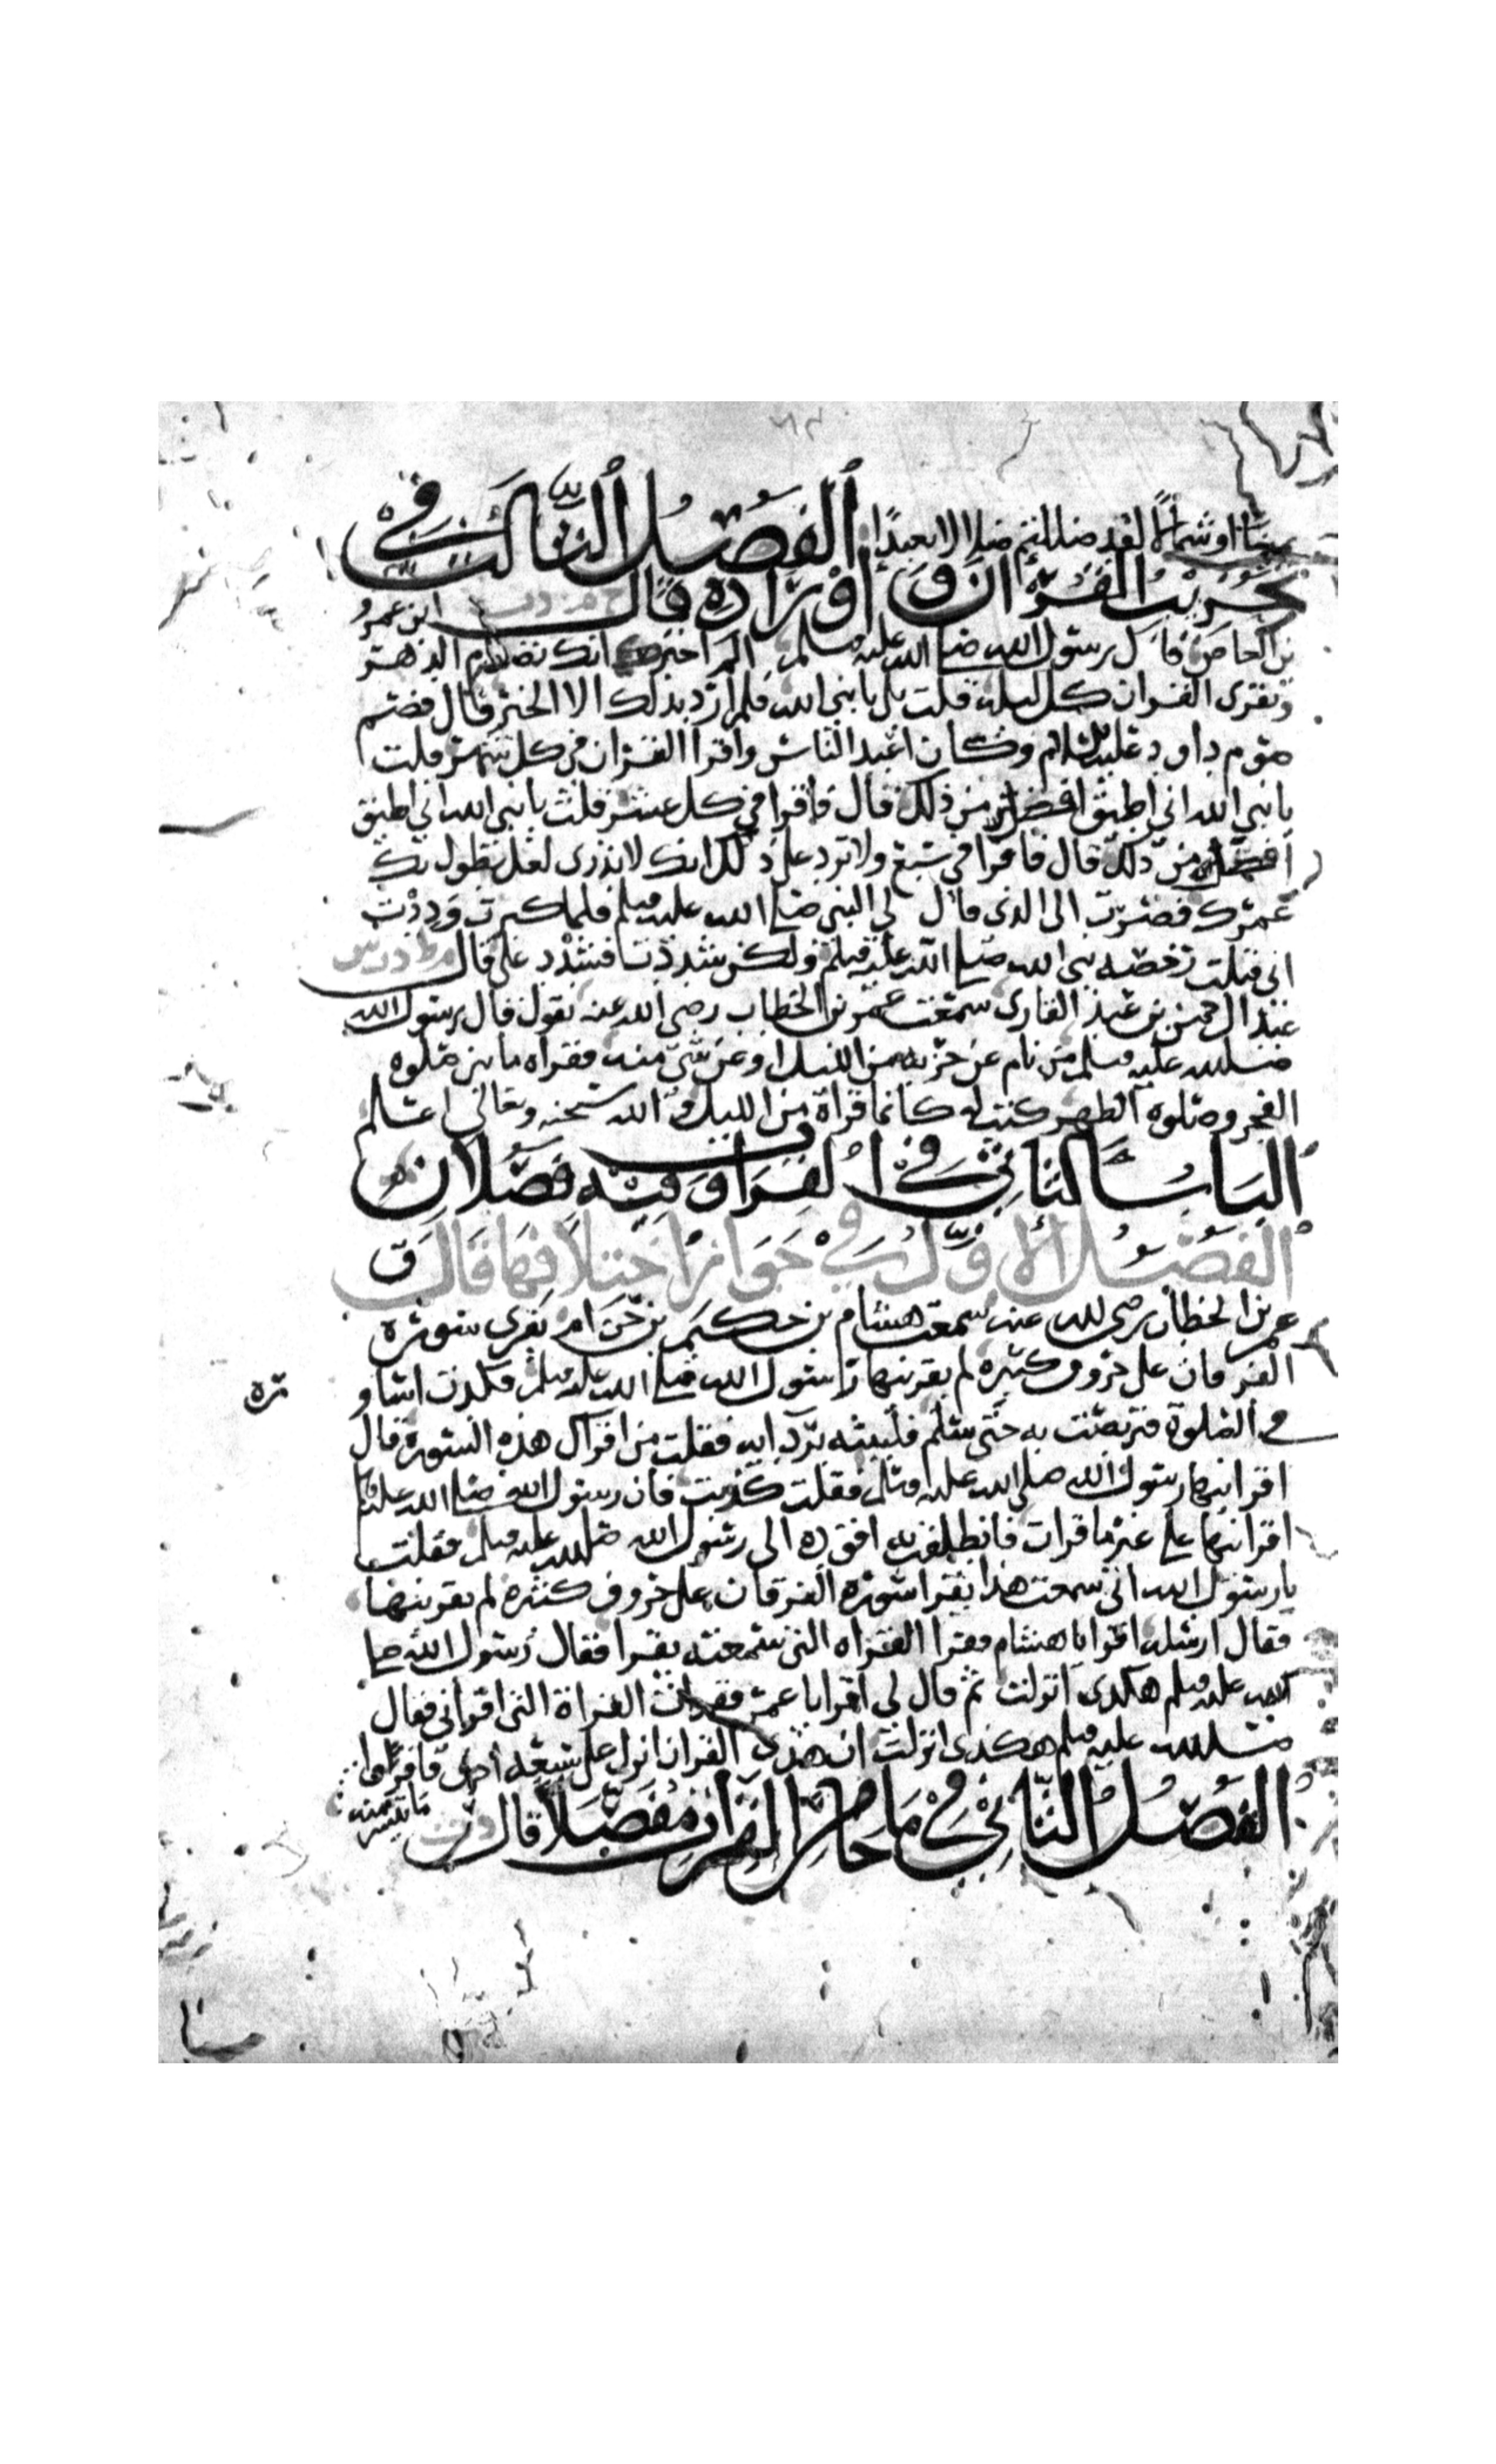 يمينا او شمالا لقد ضللتم ضلالا بعيدا الفصل الثالث في
تحزيب القرآن واوراده قال ابن عمرو
بن العاص قال رسول الله صلى الله عليه وسلم الم اخبر انك تصوم الدهر
وتقرى القران كل ليلة قلت بلى يا نبي الله فلم ارد بذلك الا الخير قال فصم
صوم داود عليه السلام وكان اعبد الناس واقرا القران في كل شهر قلت
يا نبي الله اني اطيق افضل من ذلك قال فاقرا في كل عشر قلت يا نبي الله اني اطيق
افضل من ذلك قال فاقرا في سبع ولا تزد على ذلك انك لا تدري لعل يطول بك
عمرك فصرت الى الذي قال لي النبي صلى الله عليه وسلم فلما كبرت وددت
اني قبلت رخصة نبي الله صلى الله عليه وسلم ولكن شددت فشدد على قال
عبد الرحمن بن عبد القاري سمعت عمر بن الخطاب رضي الله عنه يقول قال رسول الله
صلى الله عليه وسلم من نام عن حزبه من الليل او عن شي منه فقراه ما بين صلوة
الفجر وصلوة الظهر كتب له كانما قراة من الليل والله سبحنه وتعالى اعلم
الباب الثاني في القراة وفيه فصلان
الفصل الاول في جواز اختلافها قال ق
عمر بن الخطاب رضي الله عنه سمعت هشام بن حكيم بن حزام يقرى سورة
الفرقان على حروف كثيرة لم يقرينها رسول الله صلى الله عليه وسلم فكدت اساو
ره
في الصلوة فتربصت به حتى سلم فلببته بردايه فقلت من اقراك هذه السورة قال
اقرانيها رسول الله صلى الله عليه وسلم فقلت كذبت فان رسول الله صلى الله عليه
اقرانيها على غير ما قرات فانطلقت به اقوده الى رسول الله صلى الله عليه وسلم فقلت
يا رسول الله اني سمعت هذا يقرا سورة الفرقان على حروف كثيرة لم يقرينها
فقال ارسله اقرا يا هشام فقرا القراه التي سمعته يقرا فقال رسول الله صلى
الله عليه وسلم هكذى انزلت ثم قال لي اقرا يا عمر فقرات القراة التي اقراني فقال
صلى الله عليه وسلم هكذى انزلت ان هذى القران انزل على سبعة احرف فاقروا
ما تيسر منه
الفصل الثاني في ما جا من القران مفصلا قال